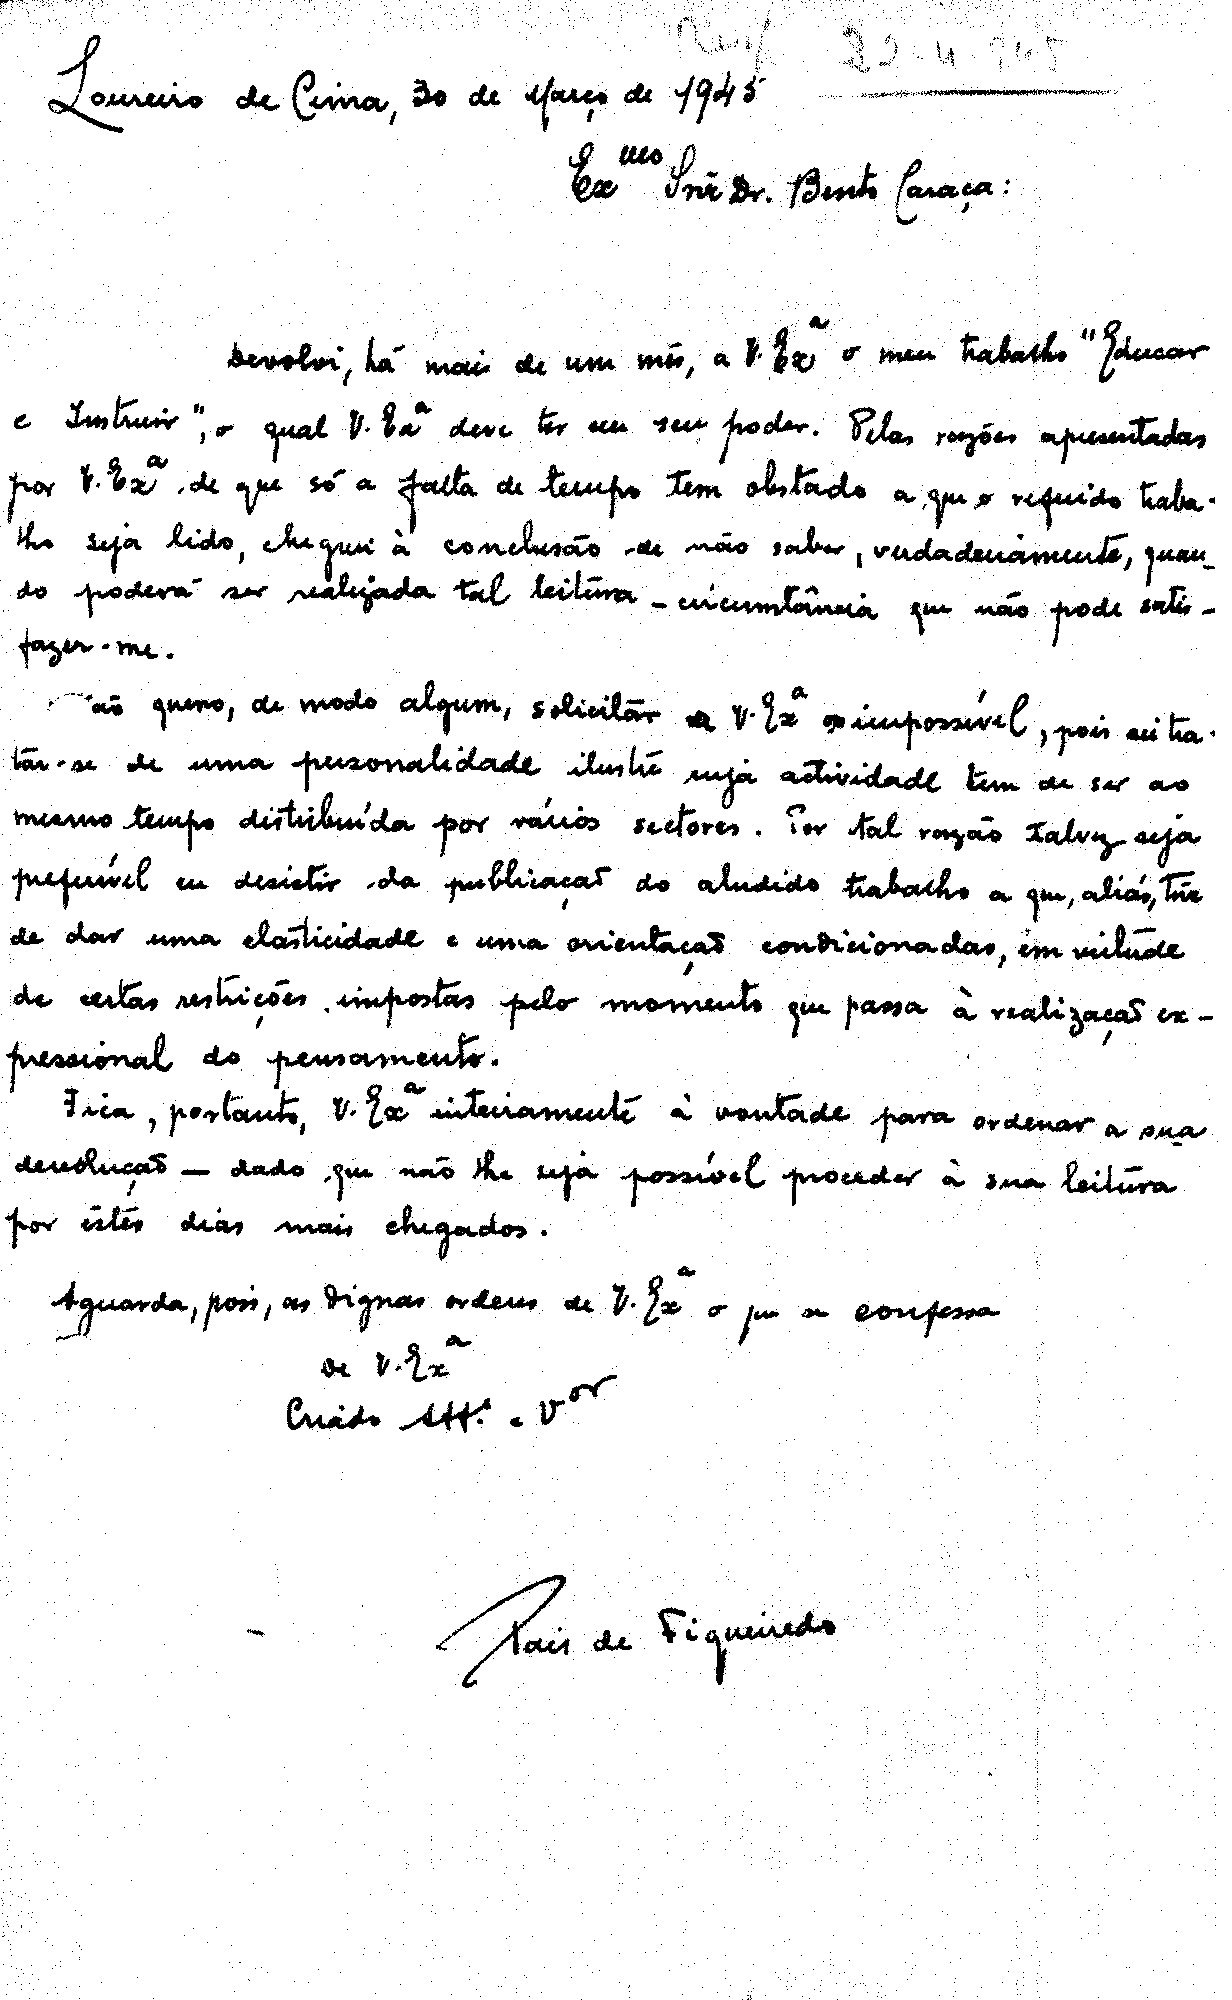 22-4-945
Loureiro de Cima, 30 de Março de 1945
Exmo Snr Dr. Bento Caraça:
Devolvi, há mais de um mês, a V. Exª o meu trabalho "Educar
e Instruir", o qual V. Exª deve ter em seu poder. Pelas razões apresentadas
por V. Exª de que só a falta de tempo tem obstado a que o referido traba-
lho seja lido, cheguei à conclusão de não saber, verdadeiramente, quan-
do poderá ser realizada tal leitura - circumtância que não pode satis-
fazer-me.
Não quero, de modo algum, solicitar a V. Exª o impossível, pois sei tra-
tar-se de uma personalidade ilustre cuja actividade tem de ser ao
mesmo tempo distribuída por vários sectores. Por tal razão talvez seja
preferível eu desistir da publicação do aludido trabalho a que, aliás, tive
de dar uma elasticidade e uma orientação condicionadas, em virtude
de certas restrições impostas pelo momento que passa à realização ex-
pressional do pensamento.
Fica, portanto, V. Exª inteiramente à vontade para ordenar a sua
devolução - dado que não lhe seja possível proceder à sua leitura
por êstes dias mais chegados.
Aguarda, pois, as dignas ordens de V. Exª o que se confessa
de V. Exª
Criado Att.º e Vor
Pais de Figueiredo